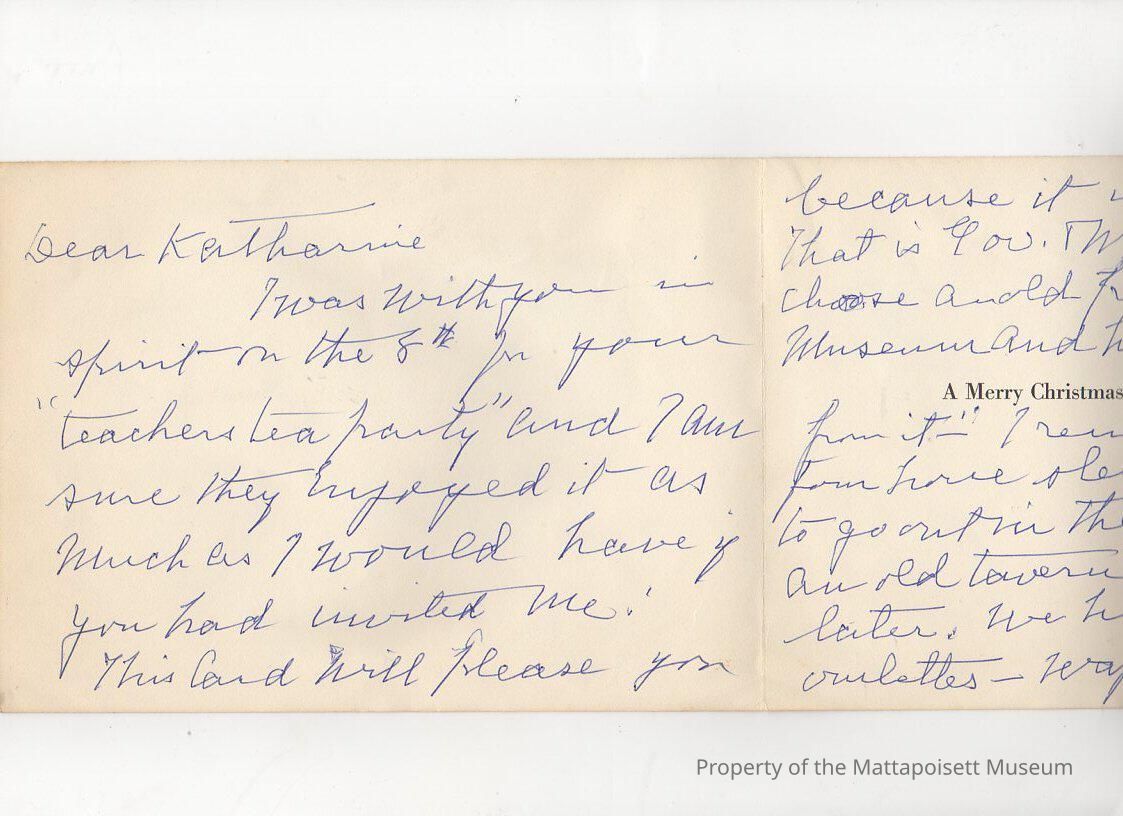 Dear Katharine
I was with you in
spirit on the 8th for your
"teachers tea party" and I am
sure they enjoyed it as
much as I would have if
you had invited me!
This Card will please you
because it
That is Gov.
choose an old
Museum and
A Merry Christmas
from it—"
four horse
to go out in the
an old tavern
later. We
omlettes —
Property of the Mattapoisett Museum